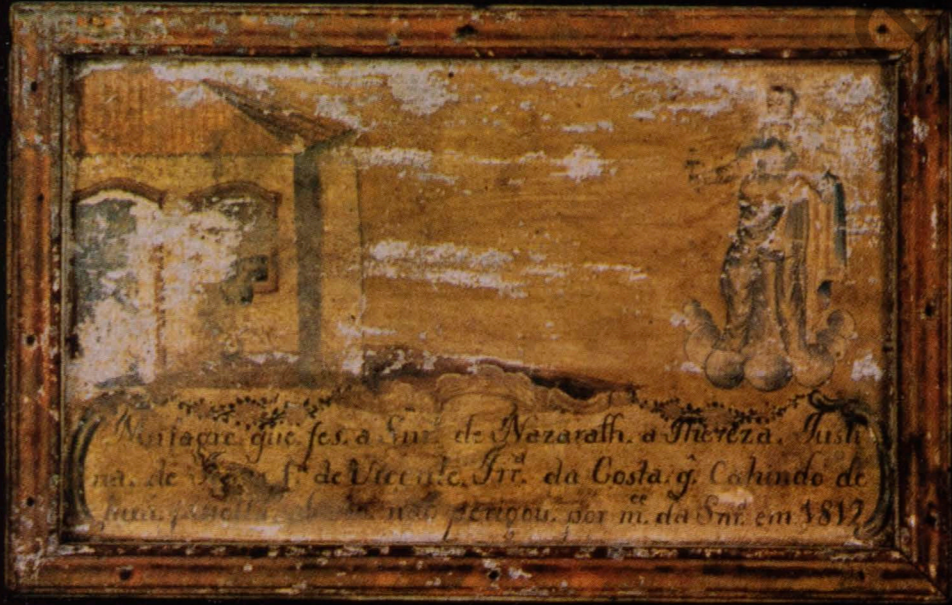 Milagre que fes. a Snrª. de Nazarath. a Thereza. Justi
na. de fª. de Vicente. Frrª. da Costa. q̃. Cahindo de
não perigou. por m.ce da Snrª. em 1812